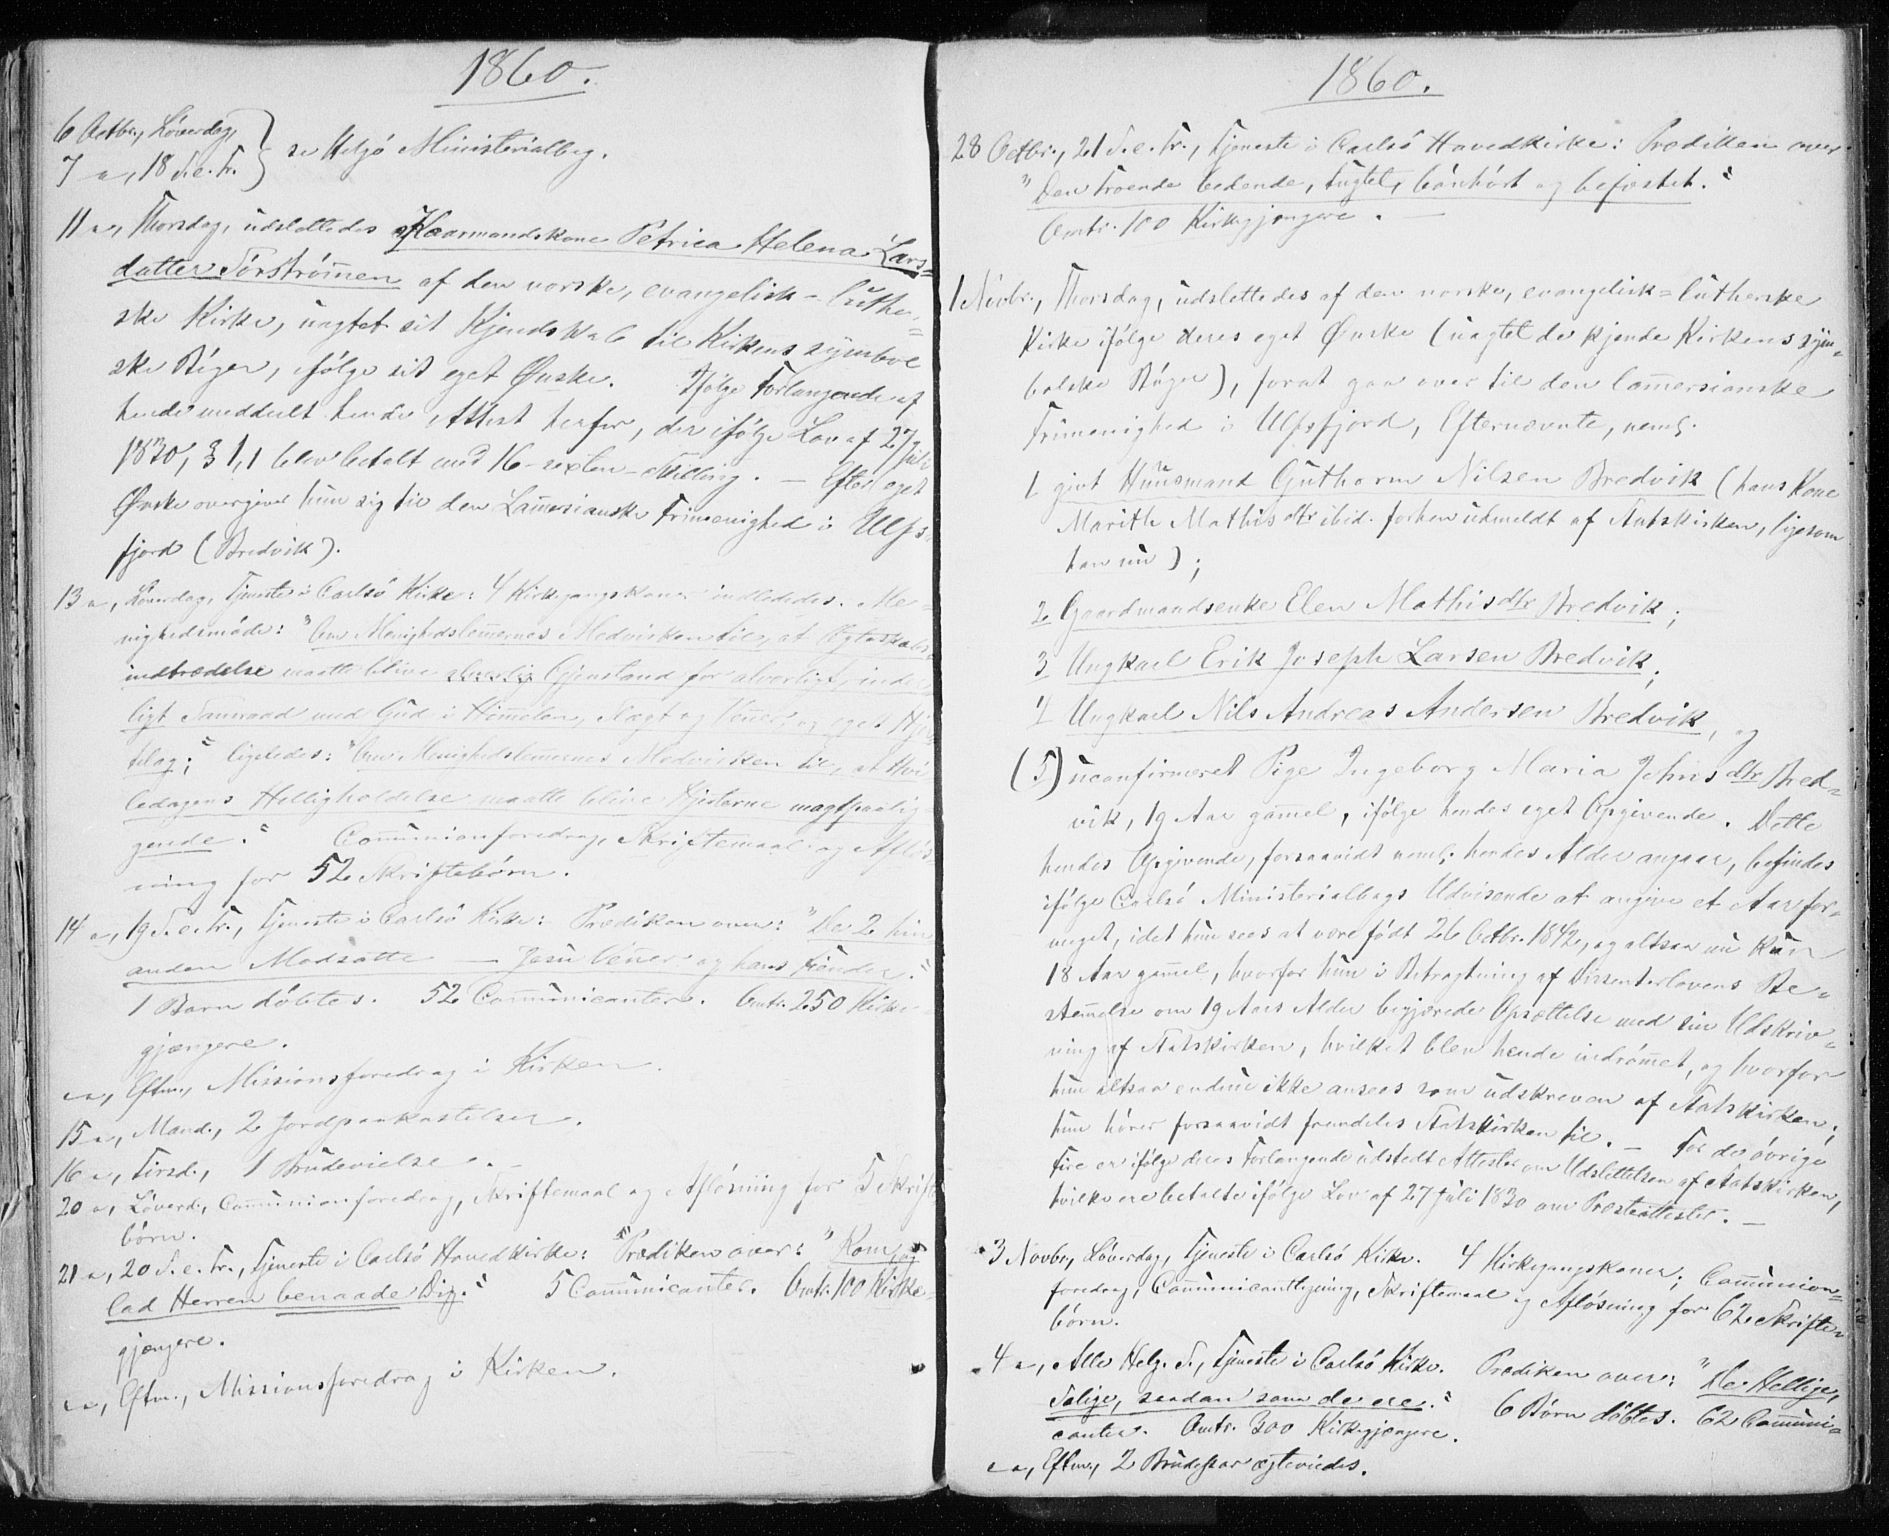 1860.
6 Octbr., Løverdag,
7 ", 18 S. e. Tr. } se Helgø Ministerialbog.
11 ", Thorsdag, udslettedes Gaardmandskone Petrica Helena Lars=
datter Sørstrømen af den norske, evangelisk-luther=
ske Kirke, uagtet sit Kjendskab til Kirkens symbol
ske Bøger, ifølge sit eget Ønske. Ifølge Forlangende af
hende meddeelt hende Attest herfor, der ifølge Lov af 27 Juli
1830, § 1,1 blev betalt med 16-sexten-Skilling. — Efter eget
Ønske overgiver hun sig til den Lamersianske Frimenighed i Ulfs=
fjord (Bredvik).
13 ", Løverdag, Tjeneste i Carlsø Kirke: 4 Kirkegangskoner indlededes. Me=
nighedsmøde: "Om Menighedslemernes Medvirken til, at Ægteskabs=
indtrædelse maatte blive alvorlig Gjenstand for alvorligt, inder=
ligt Samraad med Gud i Himelen, Slægt og Venner, og eget Hjer=
telag;" ligeledes: "Om Menighedslemernes Medvirken til, at Hvi=
ledagens Helligholdelse maatte blive Hjerterne magtpaalig=
gende." Comunionforedrag, Skriftemaal og Afløs=
ning for 52 Skriftebørn.
14 ", 19 S. e. Tr., Tjeneste i Carlsø Kirke: Prædiken over: "De 2 hin=
anden Modsatte — Jesu Venner og hans Fiender."
1 Barn døbtes. 52 Comunicanter. Omtr. 250 Kirke=
gjængere.
" ", Eftm., Missionsforedrag i Kirken.
15 ", Mand., 2 Jordpaakastelser.
16 ", Tirsd., 1 Brudevielse. —
20 ", Løverd., Comunionforedrag, Skriftemaal og Afløsning for 5 Skrifte=
børn.
21 ", 20 S. e. Tr., Tjeneste i Carlsø Hovedkirke: Prædiken over: "Kom, og
lad Herren benaade Dig." 5 Comunicanter. Omtr. 100 Kirke=
gjængere.
" ", Eftm., Missionsforedrag i Kirken.
1860.
28 Octbr., 21 S. e. Tr., Tjeneste i Carlsø Hovedkirke: Prædiken over
"Den Troende bedende, tugtet, bønhørt og befæstet."
Omtr. 100 Kirkegjængere. —
1 Novbr., Thorsdag, udslettedes af den norske, evangelisk=lutherske
Kirke ifølge deres eget Ønske (uagtet de kjende Kirkens sym=
bolske Bøger), forat gaa over til den lamersianske
Frimenighed i Ulfsfjord, Efternævnte, neml.
1 givt Huusmand Guthorm Nilsen Bredvik (hans Kone
Marith Mathisdtr ibid. forhen udmeldt af Statskirken, ligesom
han nu);
2 Gaardmandsenke Elen Mathisdtr Bredvik;
3 Ungkarl Erik Joseph Larsen Bredvik;
4 Ungkarl Nils Andreas Andersen Bredvik, og
(5) uconfirmeret Pige Ingeborg Maria Johnsdtr Bred=
vik, 19 Aar gamel, ifølge hendes eget Opgivende. Dette
hendes Opgivende, forsaavidt neml. hendes Alder angaar, befindes
ifølge Carlsø Ministerialbogs Udvisende at angive et Aar for=
meget, idet hun sees at være født 26 Octbr. 1842, og altsaa nu kun
18 Aar gamel, hvorfor hun i Betragtning af Dissenterlovens Be=
stemelse om 19 Aars Alder begjærede Opsættelse med sin Udskriv=
ning af Statskirken, hvilket blev hende indrømet, og hvorfor
hun altsaa endnu ikke ansees som udskreven af Statskirken;
hun hører forsaavidt fremdeles Statskirken til. — For de øvrige
Fire er ifølge deres Forlangende udstedt Attester om Udslettelsen af Statskirken,
hvilke ere betalte ifølge Lov af 27 Juli 1830 om Præsteattester. —
3 Novbr., Løverdag, Tjeneste i Carlsø Kirke. 4 Kirkegangskoner; Comunion=
foredrag, Skriftemaal og Afløsning for 62 Skrifte=
børn.
4 ", Alle Helg. S., Tjeneste i Carlsø Kirke. Prædiken over: "De Hellige,
Salige, saadan som de ere." 6 Børn døbtes. 62 Comuni=
canter. Omtr. 300 Kirkegjængere.
" ", Eftm., 2 Brudepar ægteviedes.